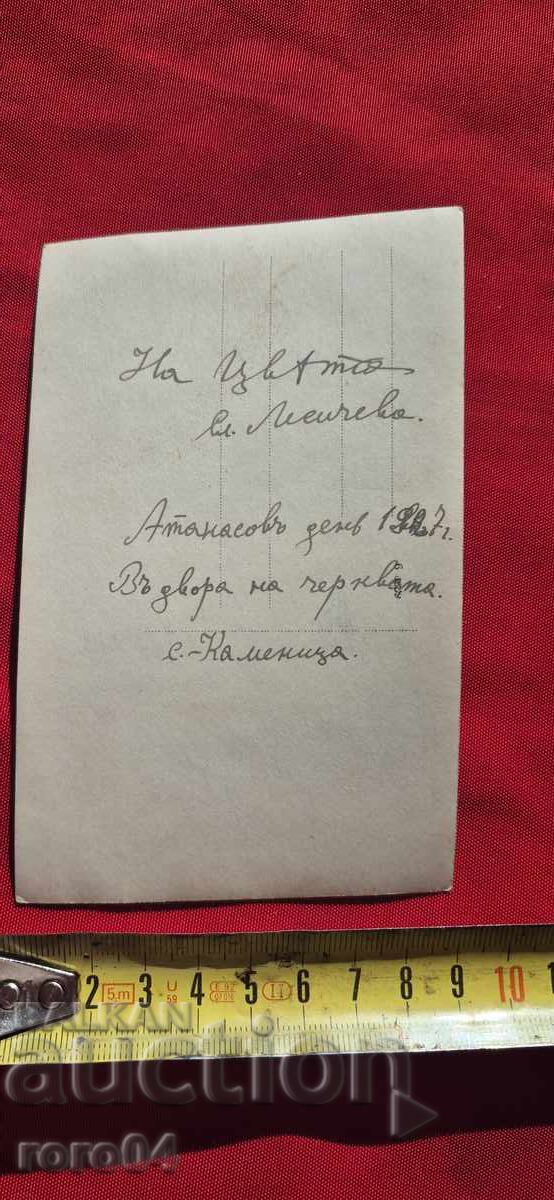 На Цвѣта
вл. Лисичева.
Атанасовъ день 1927г.
Въ двора на черквата.
с.-Каменица.
2 5m 3 U 59 4 5 II 6 7 8 9 10
BALKAN
auction
roro04